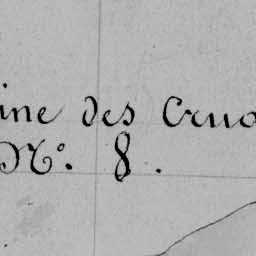 ine des Cruo
No. 8.